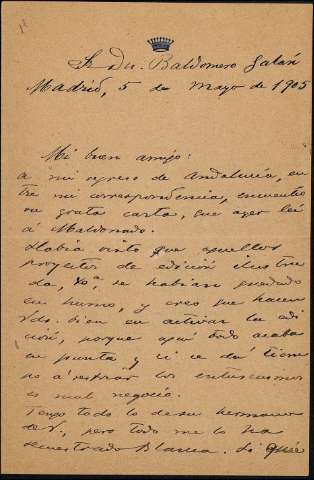 Sr. Dn. Baldomero Galán
Madrid, 5 de Mayo de 1905
Mi buen amigo:
a mi regreso de Andalucía, en
tre mi correspondencia, encuentro
su grata carta, que ayer leí
á Maldonado.
Había visto que aquellos
proyectos de edición ilustra
da, se habían quedado
en humo, y creo que hacen
Vds. bien en activar la edi
ción, porque aquí todo acaba
en punta y si se da tiem
po á los entusiasmos
es mal negocio.
Tengo todo lo de su hermano
de V., pero todo me lo ha
secuestrado Blanca. Si